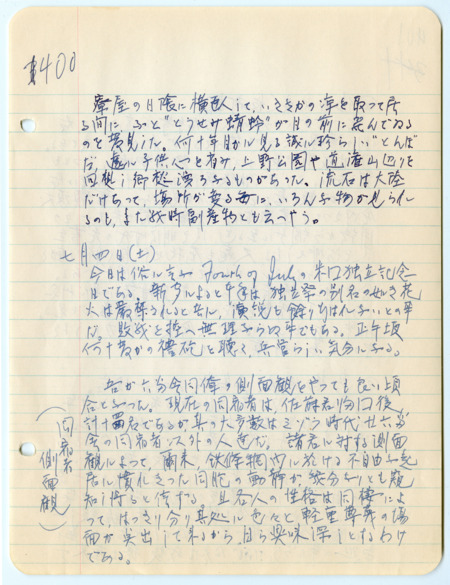 400
の日陰に横臥して、いささかの涼を取って居
る間に ふと"とうせみ蜻蛉"が目の前に飛んでゐる
のを発見した。何十年目かに見る誠に珍らしい"とんぼ"
だ、遠い子供心を省み、上野公園や道灌山辺りを
回想し郷愁湧るものがあった。流石は大陸
だけあって、場所が変る毎に、いろんな物が見られ
るのも、また戦時副産物とも云へやう。
七月四日(土)
今日は俗に言ふ Fourth of July の米国独立記念
日である。新聞によると今年は、独立祭の別名の如き花
火は厳禁されると共に、演説も余りはなしとの事
だ、戦戦を控へ無理からぬ事でもある。正午頃
何十発かの禮砲を聴く、兵営らしい気分になる。
同僚の側面観をやっても良い頃
合となった。現在の同宿者は、佐藤君帰口後、
計十四名であるが其の大多数はミゾラ時代廿六番
屋の同宿者以外の人達だ。諸君に対する側面
観によって、爾来、鉄條網内に於ける不自由な起
居に慣れきった同胞の動静が幾分なりとも窺
知し得ると信ずる。且各人の性格は同棲によ
って、はっきり分り其処に色々と軽重尊義の場
面が突出して来るから、自ら興味深しとなるわけ
である。
(同宿者側面観)